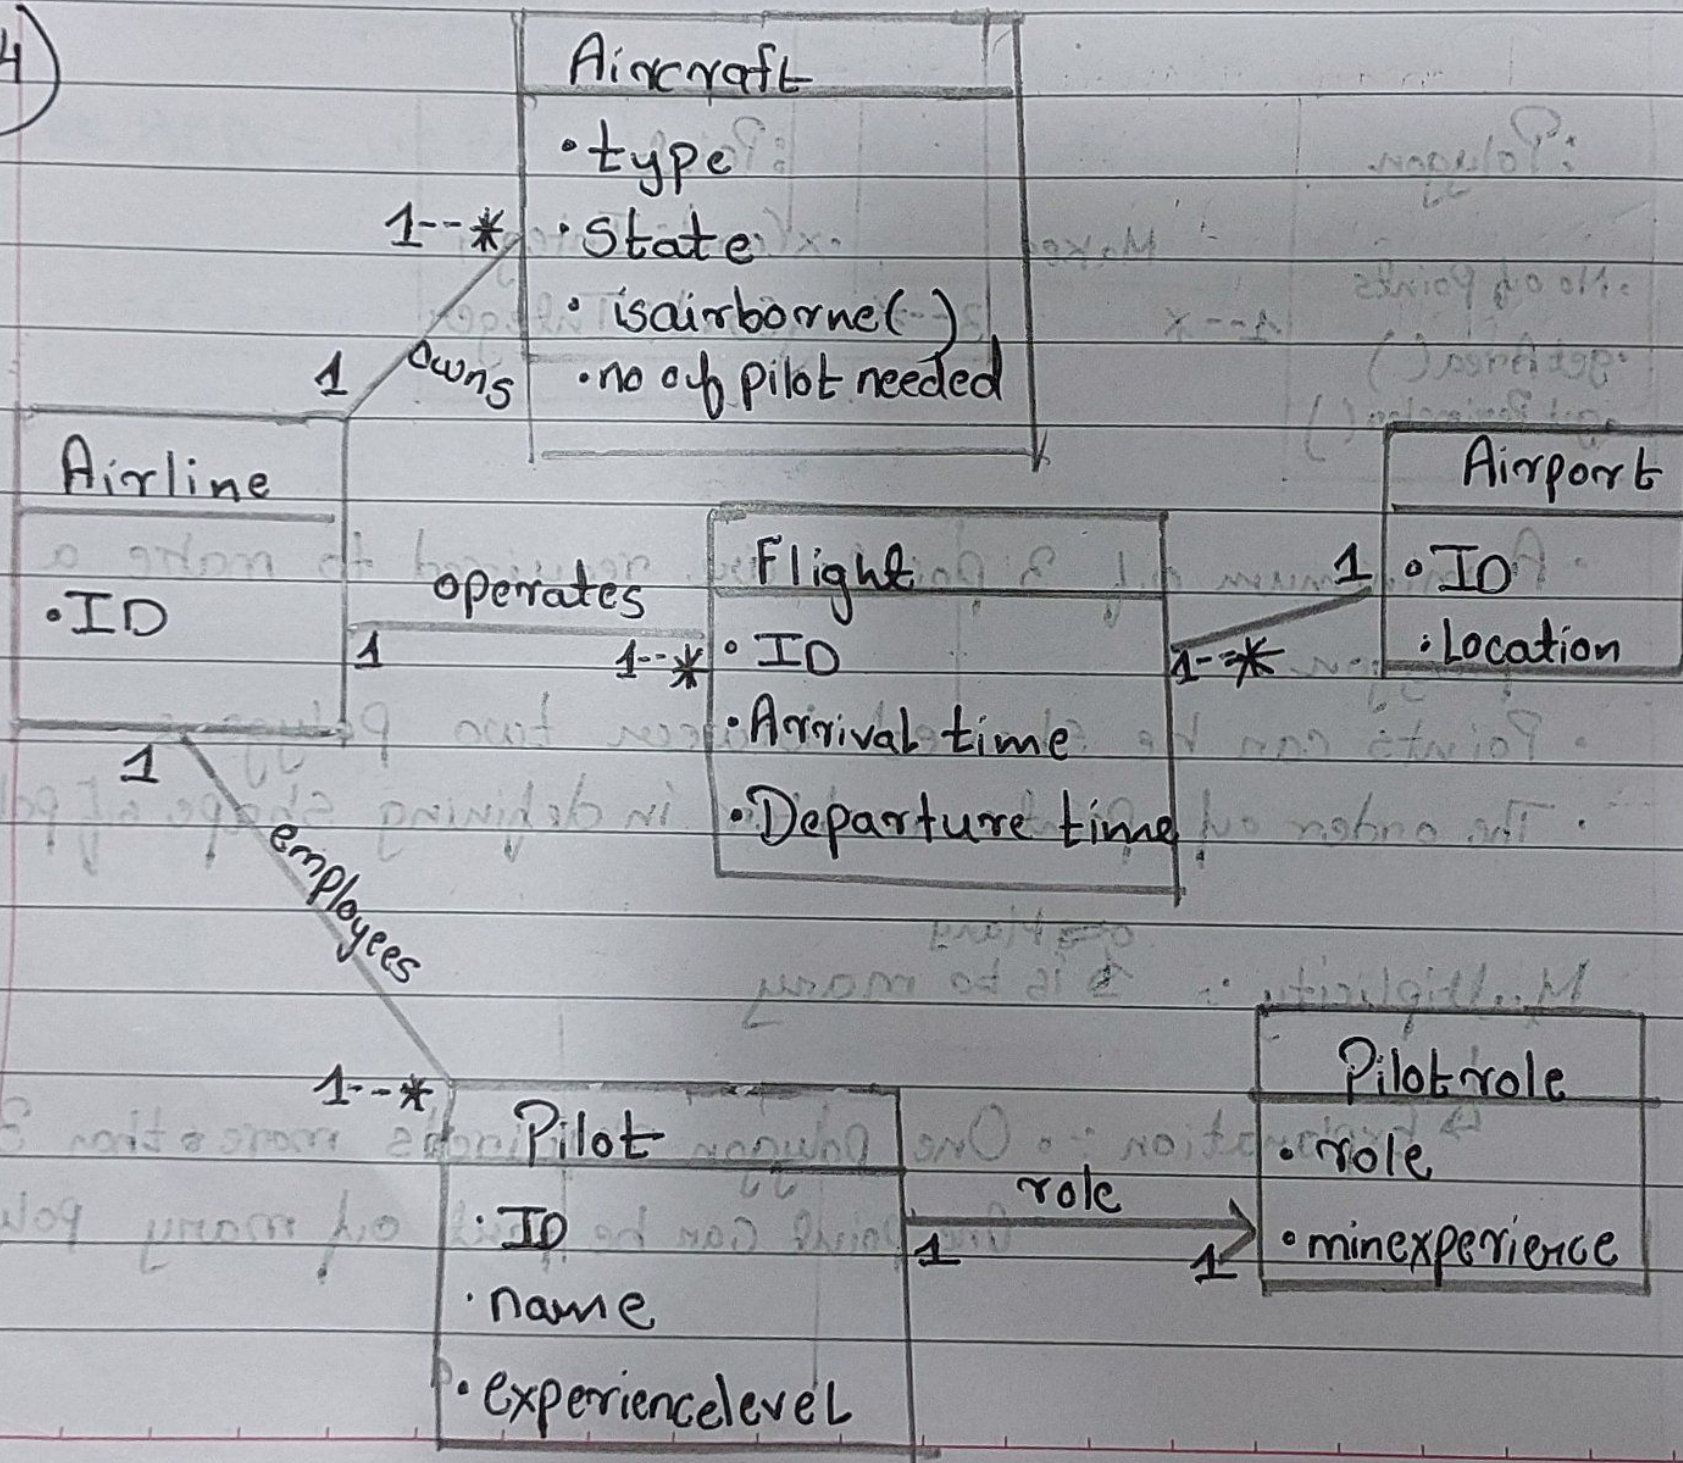 4)
Aircraft
• type
• State
• isairborne( )
• no of pilot needed
1--*
owns
1
Airline
• ID
operates
1
1--*
Flight
• ID
• Arrival time
• Departure time
1--*
1
Airport
• ID
• Location
1
employees
1--*
Pilot
• ID
• name
• experiencelevel
role
1
1
Pilotrole
• role
• minexperience